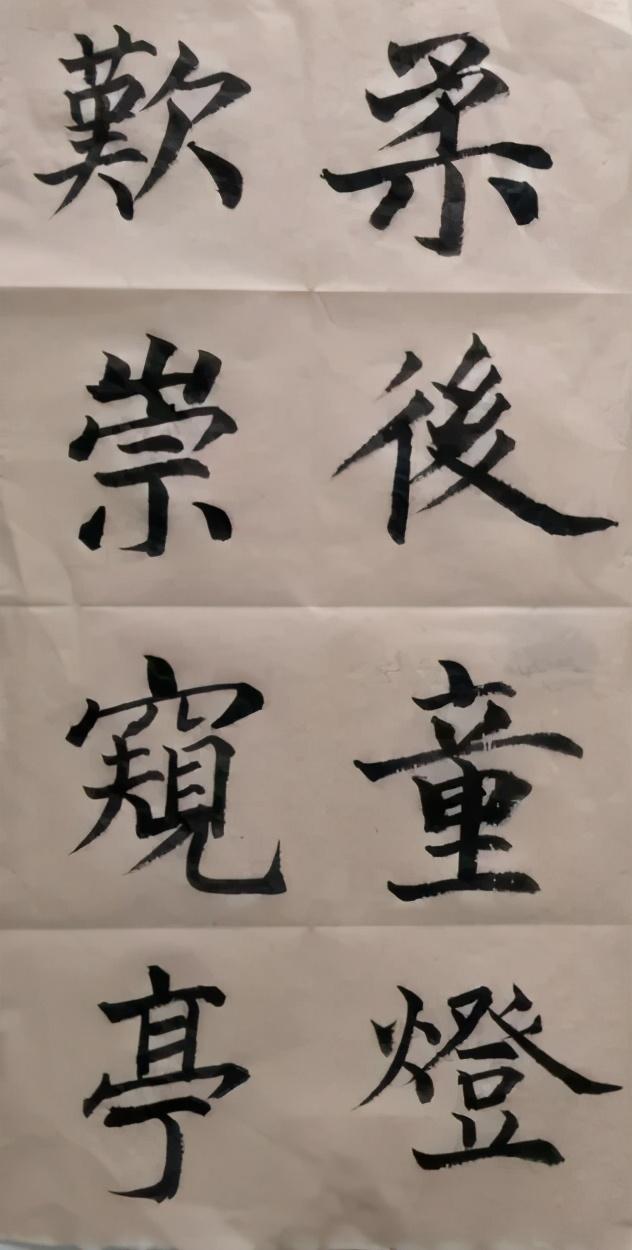 柔後童燈
歎崇窺亭